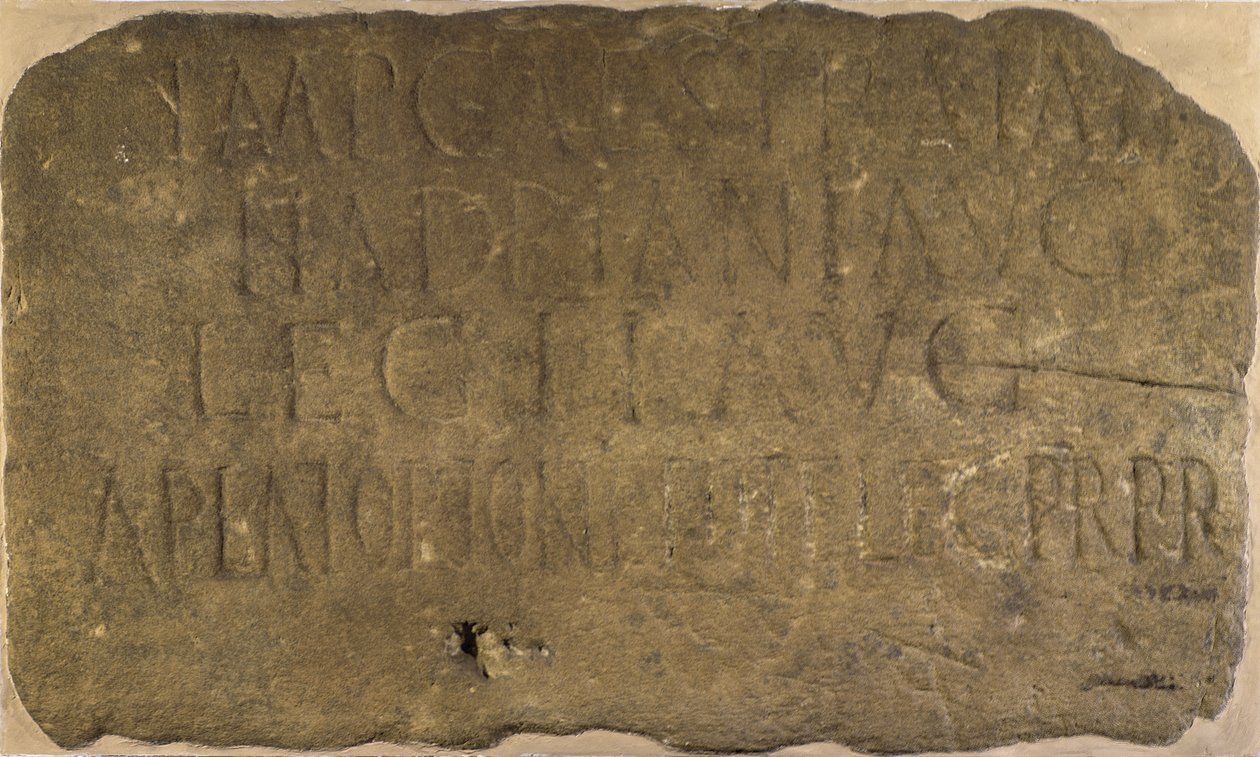 IMP CAES TRAIAN
HADRIANI AVG
LEG II AVG
A PLATORIO NEPOTE LEG PR PR